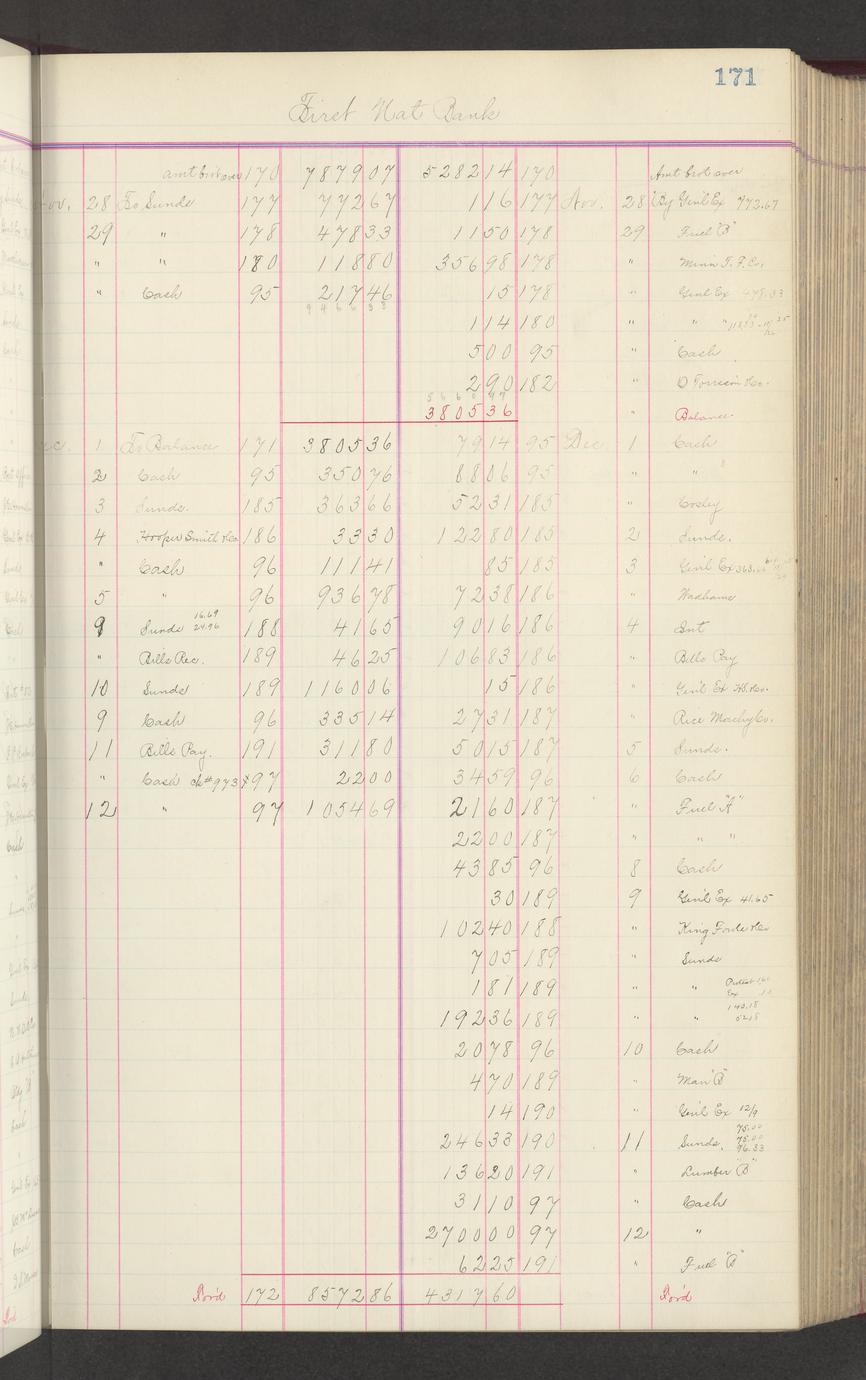 171
First Nat Bank
amt brot over 170 7879 07 5282 14 170 Amt brot over
Nov. 28 To Sunds 177 772 67 1 16 177 Nov. 28 By Gen'l Ex 772.67
29 " 178 478 33 11 50 178 29 Fuel "B"
" " 180 118 80 356 98 178 " Minn T. F. Co.
" Cash 95 217 46 15 178 " Gen'l Ex 478.33
9466 33
1 14 180 " " "
5 00 95 " Cash
2 90 182 " O Torrison Co.
5660 97
3805 36 " Balance
Dec. 1 To Balance 171 3805 36 79 14 95 Dec 1 Cash
2 Cash 95 350 76 88 06 95 " "
3 Sunds. 185 363 66 52 31 185 " Cosley
4 Hooper Smith & Co 186 33 30 122 80 185 2 Sunds.
" Cash 96 111 41 85 185 3 Gen'l Ex
5 " 96 936 78 72 38 186 " Wadhams
9 Sunds 16.69 24.96 188 41 65 90 16 186 4 Int
" Bills Rec. 189 46 25 106 83 186 " Bills Pay
10 Sunds 189 1160 06 15 186 " Gen'l Ex H.S. & Co.
9 Cash 96 335 14 27 31 187 " Rice Machy Co.
11 Bills Pay. 191 311 80 50 15 187 5 Sunds.
" Cash ck# 973 97 22 00 34 59 96 6 Cash
12 " 97 1054 69 21 60 187 " Fuel "A"
22 00 187 " " "
43 85 96 8 Cash
30 189 9 Gen'l Ex 41.65
102 40 188 " King Fowle & Co
7 05 189 " Sunds
1 81 189 " " Protest Ex
192 36 189 " " 140.18 52.18
20 78 96 10 Cash
4 70 189 " Man "B"
14 190 " Gen'l Ex 12/9
246 33 190 11 Sunds. 75.00 75.00 96.33
136 20 191 " Lumber "B"
31 10 97 " Cash
2700 00 97 12 "
62 25 191 " Fuel "B"
For'd 172 8572 86 4317 60 For'd